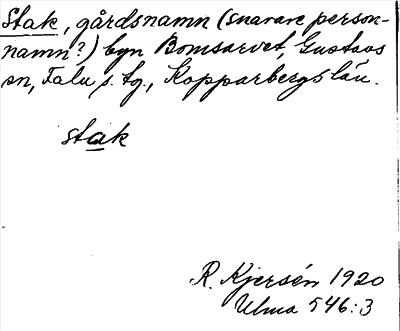 Stak, gårdsnamn (snarare person-
namn?) byn Bomsarvet, Gustavs
sn, Falu s. tg., Kopparbergs län.
stak
R. Kjersén 1920
Ulma 546:3